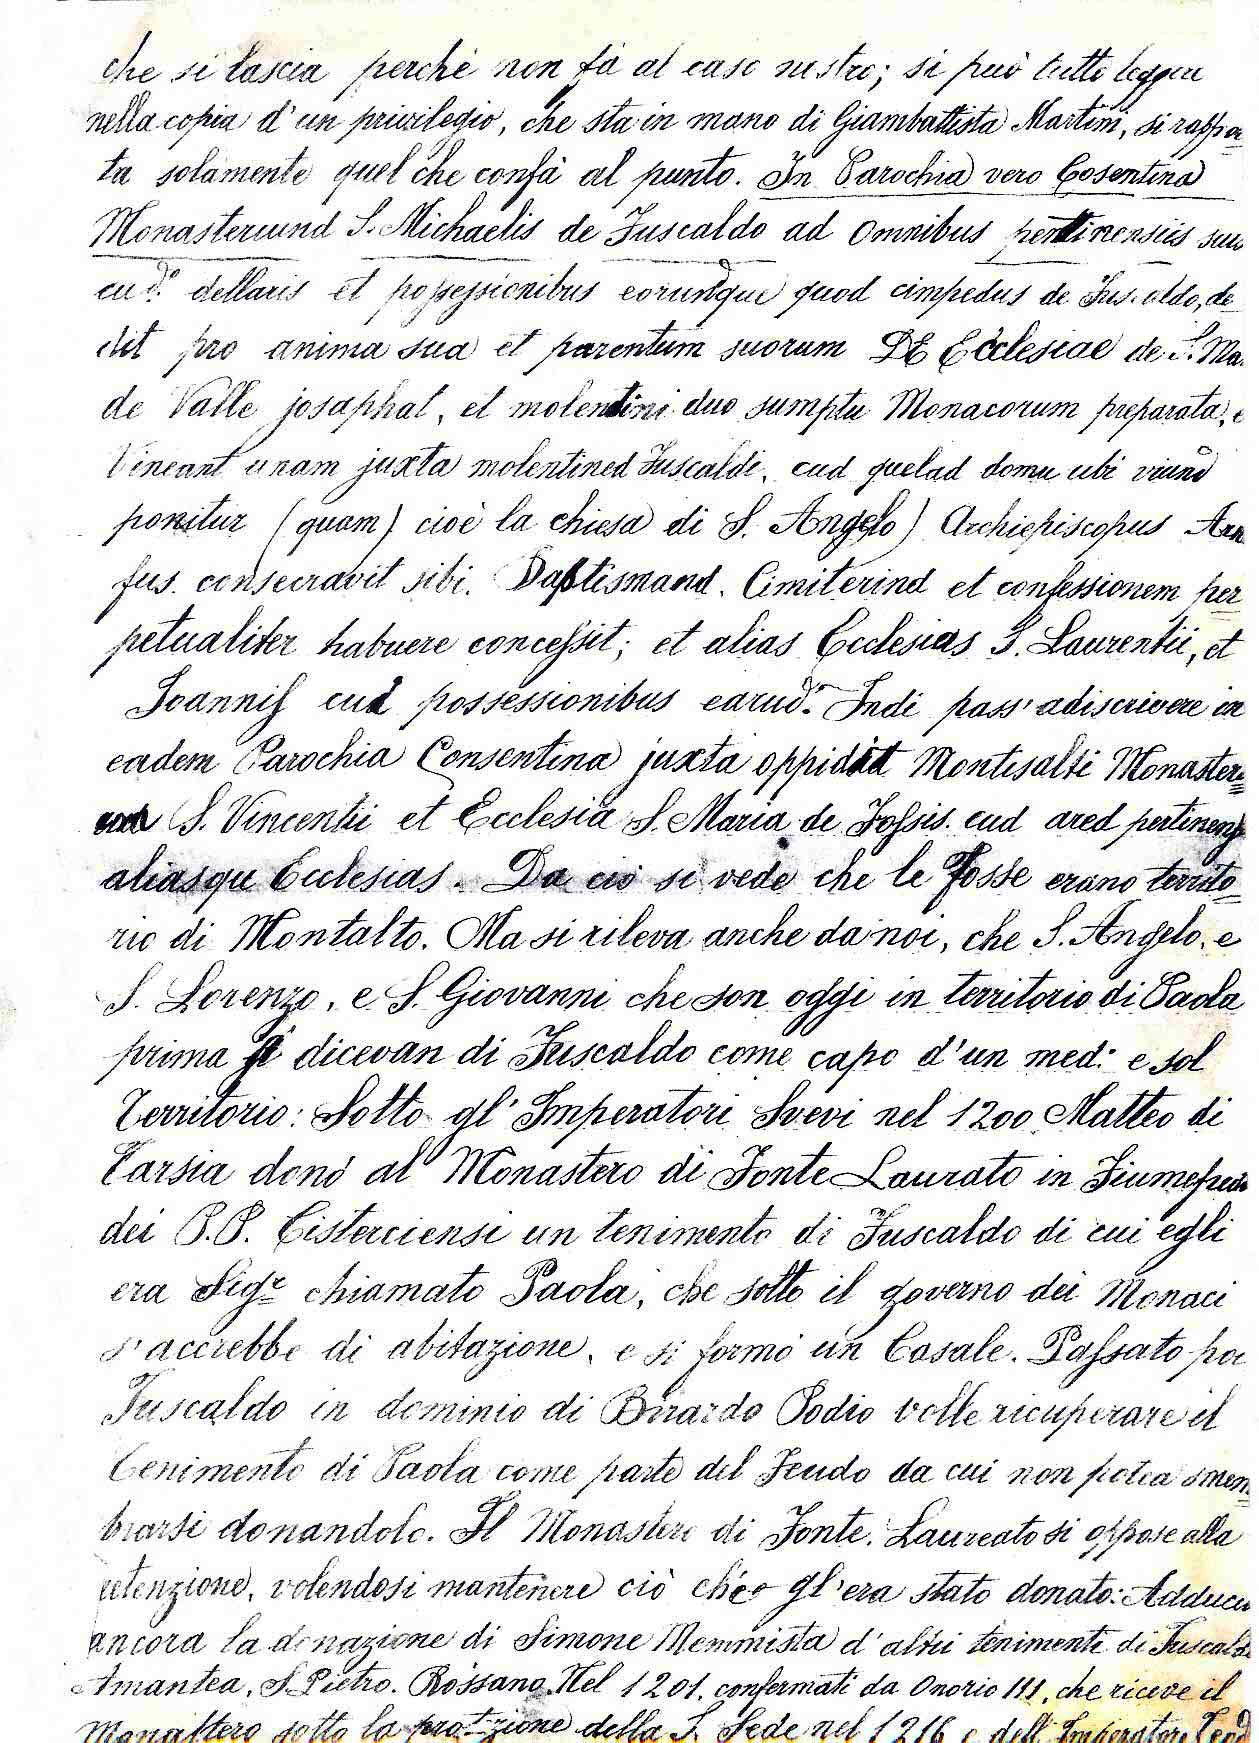 che si lascia perchè non fà al caso nostro; si può tutto leggere
nella copia d'un privilegio, che sta in mano di Giambattista Martini, si rappor
ta solamente quel che confà al punto. In Parochia vero Cosentina
Monasteriund S. Michaelis de Fuscaldo ad omnibus pertinensiis suis
cud.° dellaris et possessionibus eorundque quod cimpedus de Fuscaldo, de
dit pro anima sua et parentum suorum DE Ecclesiae de S. Ma.
de Valle josaphat, et molentini duo sumptu Monacorum preparata, e
Vineant unam juxta molentined Fuscaldi, cud quelad domu ubi vinũ
ponitur (quam) cioè la chiesa di S. Angelo) Archiepiscopus Arn
fus. consecravit sibi. Baptismand. Cimiterind et confessionem per
petualiter habuere concessit; et alias Ecclesias S. Laurentii, et
Joannis cud possessionibus earud.m Indi pass' adiscrivere in
eadem Parochia Consentina juxta oppidũt Montisalti Monaster
S. Vincentii et Ecclesia S. Maria de Fossis. cud ared pertinens
aliasque Ecclesias. Da ciò si vede che le Fosse erano territo
rio di Montalto. Ma si rileva anche da noi, che S. Angelo, e
S. Lorenzo, e S. Giovanni che son oggi in territorio di Paola
prima si dicevan di Fuscaldo come capo d'un med: e sol
Territorio: Sotto gl'Imperatori Svevi nel 1200 Matteo di
Tarsia donò al Monastero di Fonte Laurato in Fiumefreddo
dei P.P. Cisterciensi un tenimento di Fuscaldo di cui egli
era Sigr chiamato Paola, che sotto il governo dei Monaci
s'accrebbe di abitazione, e si formò un Casale. Passato poi
Fuscaldo in dominio di Berardo Podio volle ricuperare il
Tenimento di Paola come parte del Feudo da cui non potea smem
brarsi donandolo. Il Monastero di Fonte Laureato si oppose alla
retenzione, volendosi mantenere ciò che gl'era stato donato: Adduce
ancora la donazione di Simone Memmista d'altri tenimenti di Fuscaldo
Amantea, S. Pietro. Rossano. Nel 1201. confermati da Onorio III, che riceve il
Monastero sotto la protezione della S. Sede nel 1216 e dell'Imperatore